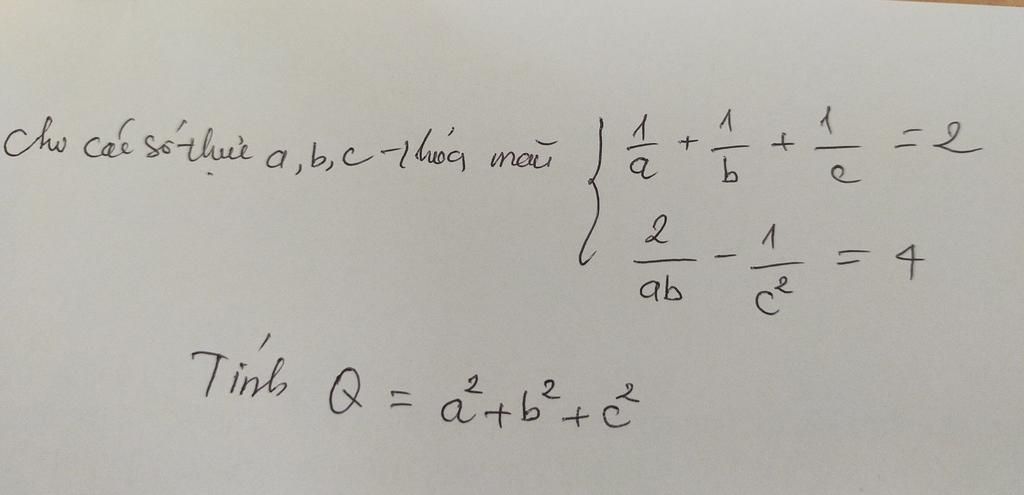 Cho các số thực a, b, c thỏa mãn { 1/a + 1/b + 1/c = 2
2/ab - 1/c² = 4
Tính Q = a² + b² + c²